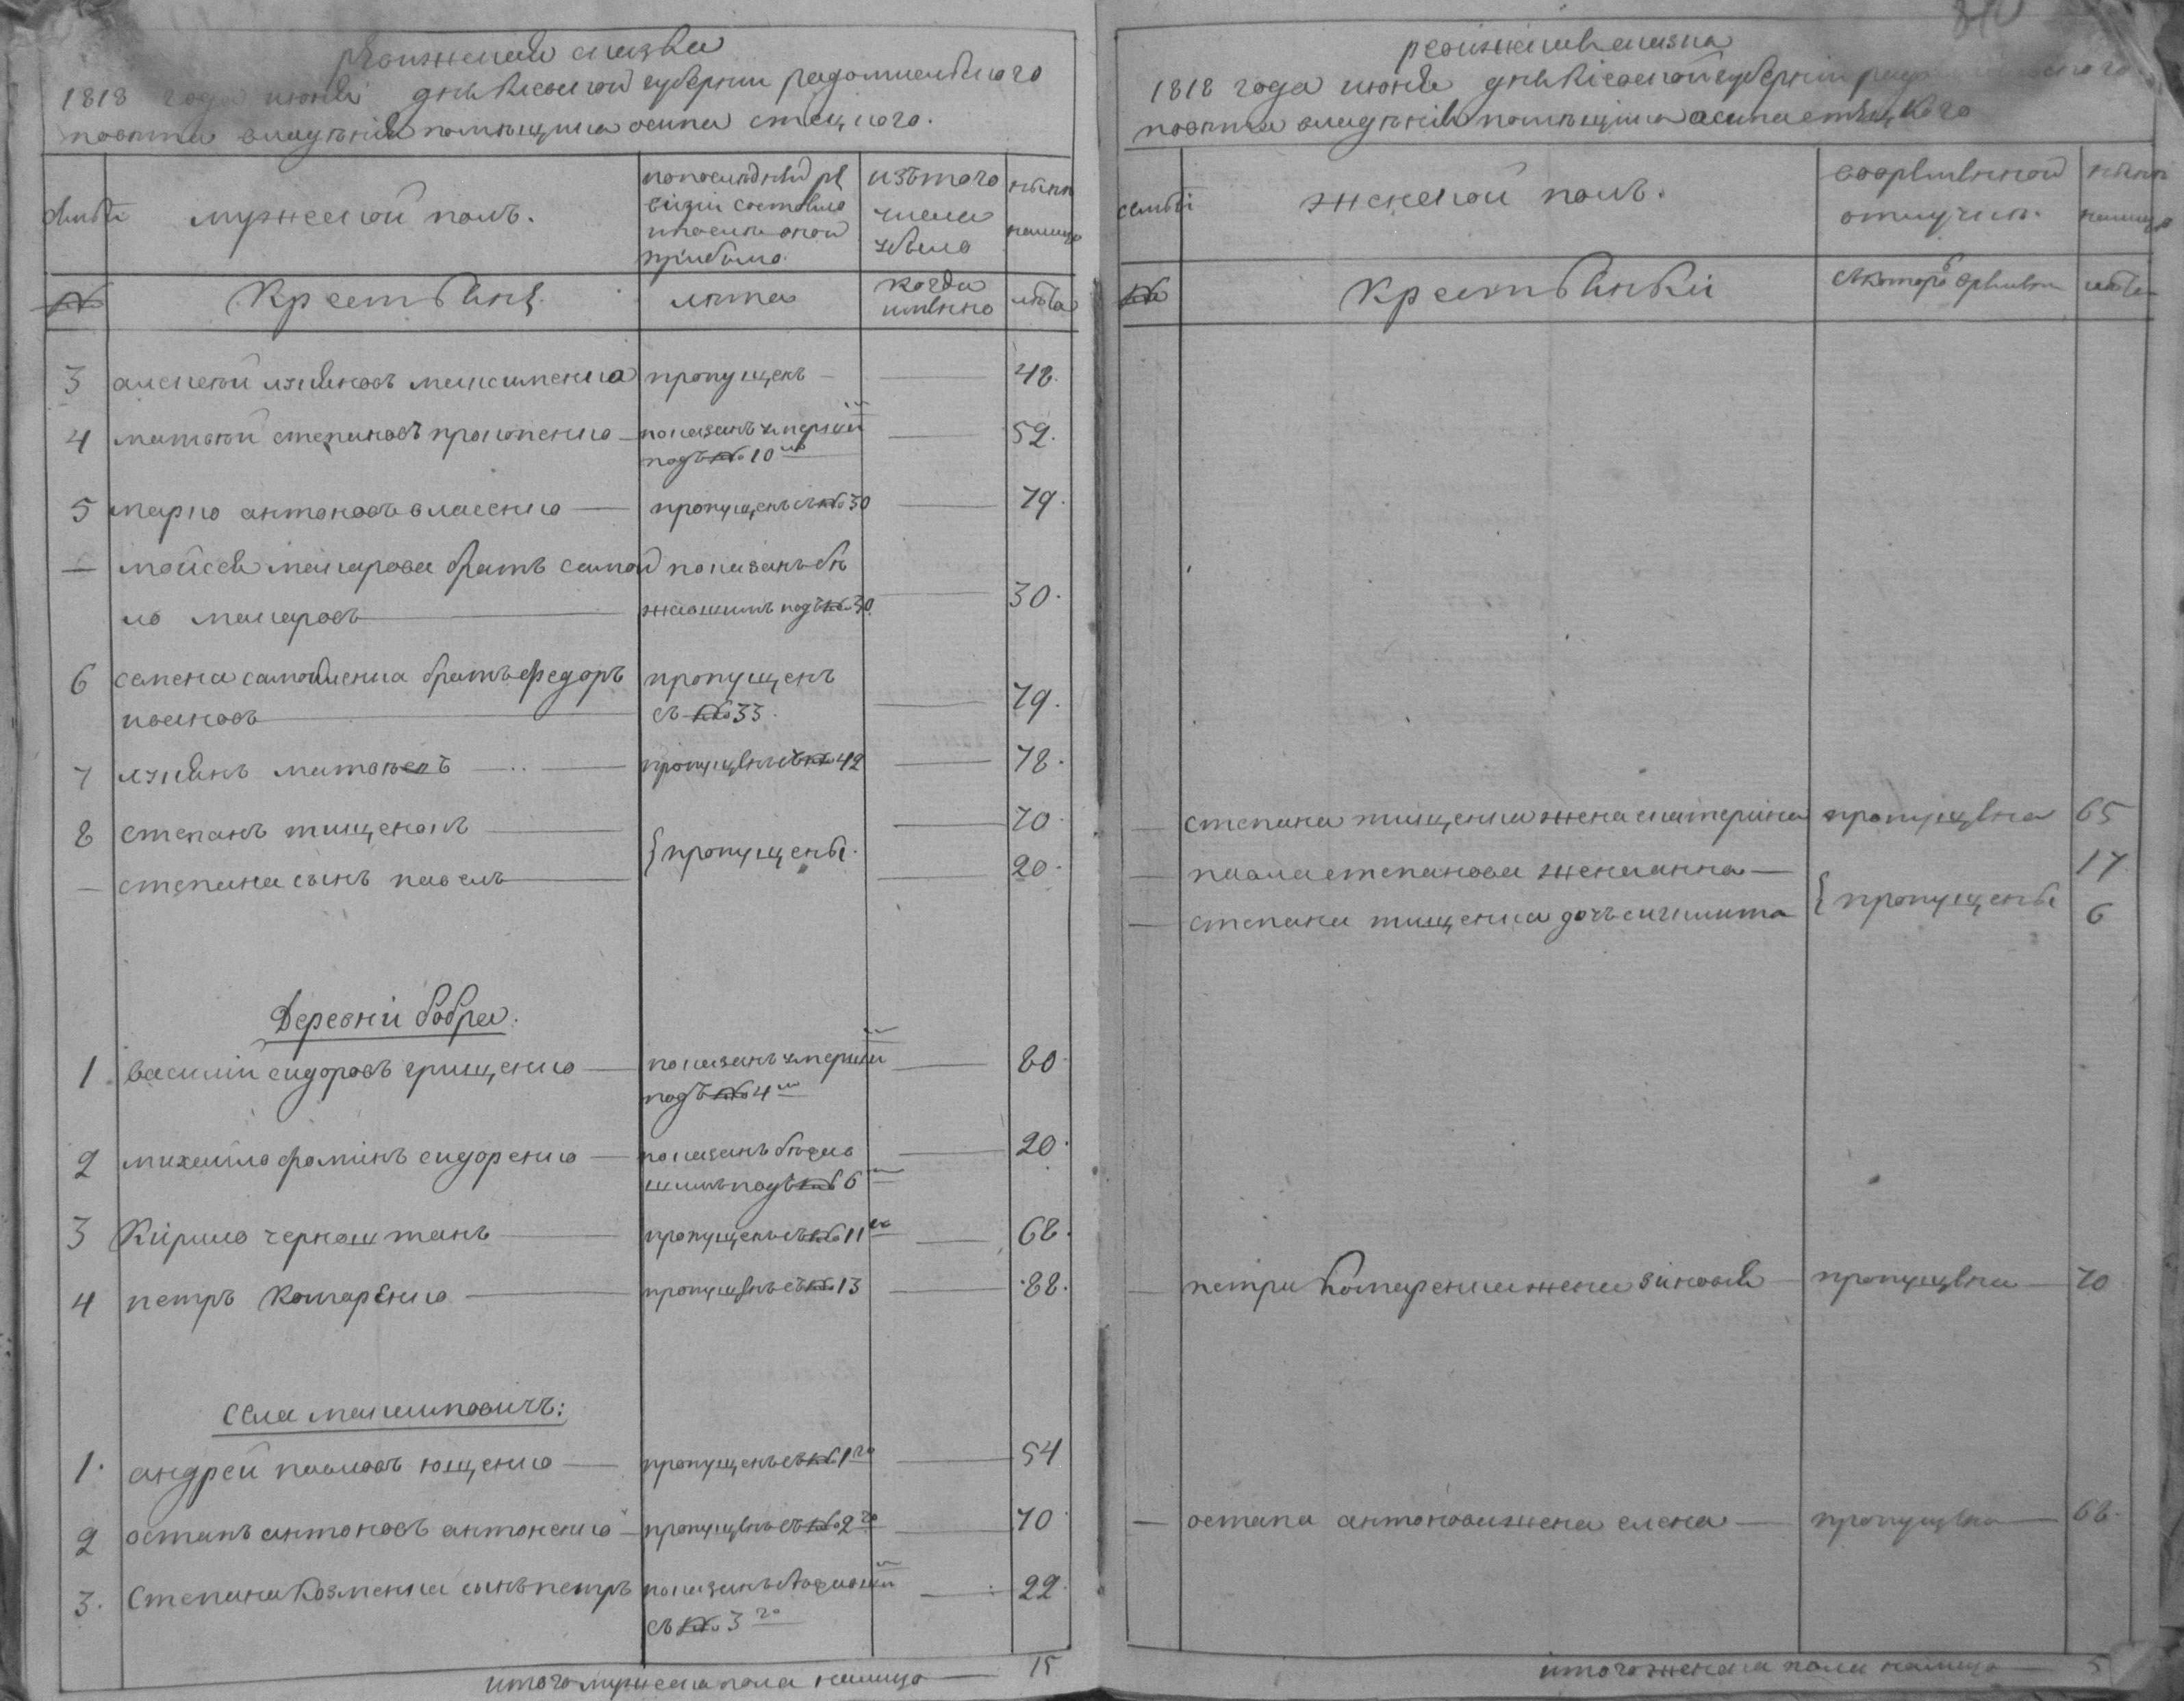 ревизская сказка
1818 года июня дня Киевской губернии радомысльского
повета владения помещика осипа стецкого.
семьи
мужеской полъ.
попоследней ре
визии состояло
ипосле оной
прибыло.
изътого
числа
убыло
ныне
налицо
№
Крестьяне
лета
когда
имянно
лета
3 алексей лукьяновъ максименко пропущенъ — 48.
4 матвей степановъ прокопенко показанъ умершим
подъ № 10 мъ 52.
5 марко антоновъ власенко пропущенъ съ № 30 79.
— мойсея макарова братъ самой показанъ бе
ло макаровъ жавшимъ подъ № 30 30.
6 семена самойленка братъ федоръ пропущенъ
ивановъ съ № 33. 79.
7 лукьянъ пропущенъ съ № 42 78.
8 степанъ тищенокъ 70.
{пропущены.
— степана сынъ павелъ 20.
Деревни бобра.
1 василий сидоровъ грищенко показанъ умершим
подъ № 4 мъ 80
2 михайло фоминъ сидоренко показанъ бежав
шимъ подъ № 6 20.
3 Кирило черноштанъ пропущенъ съ № 11 го 68.
4 петръ Комаренко пропущенъ съ № 13 88.
Села
1. андрей павловъ ющенко пропущенъ съ № 1 го 54
2 остапъ антоновъ антоненко пропущенъ съ № 2 го 70.
3. Степана Козменка сынъ петръ показанъ бежавшим
съ № 3 го 22.
итого мужеска пола налицо 15
ревизская сказка
1818 года июня дня Киевской губернии
повета владения помещика осипа стецкого
семьи
женской полъ.
вовременной
отлучке.
ныне
налицо
№
Крестьянки
съкоторого времени
лета
— степана тищенка жена екатерина пропущена 65
— павла степанова жена анна — 17
{пропущены
— степана тищенка дочь 6
— петра Комаренка жена зиновия пропущена 70
— остапа антонова жена елена — пропущена 68.
итого женска пола налицо 5